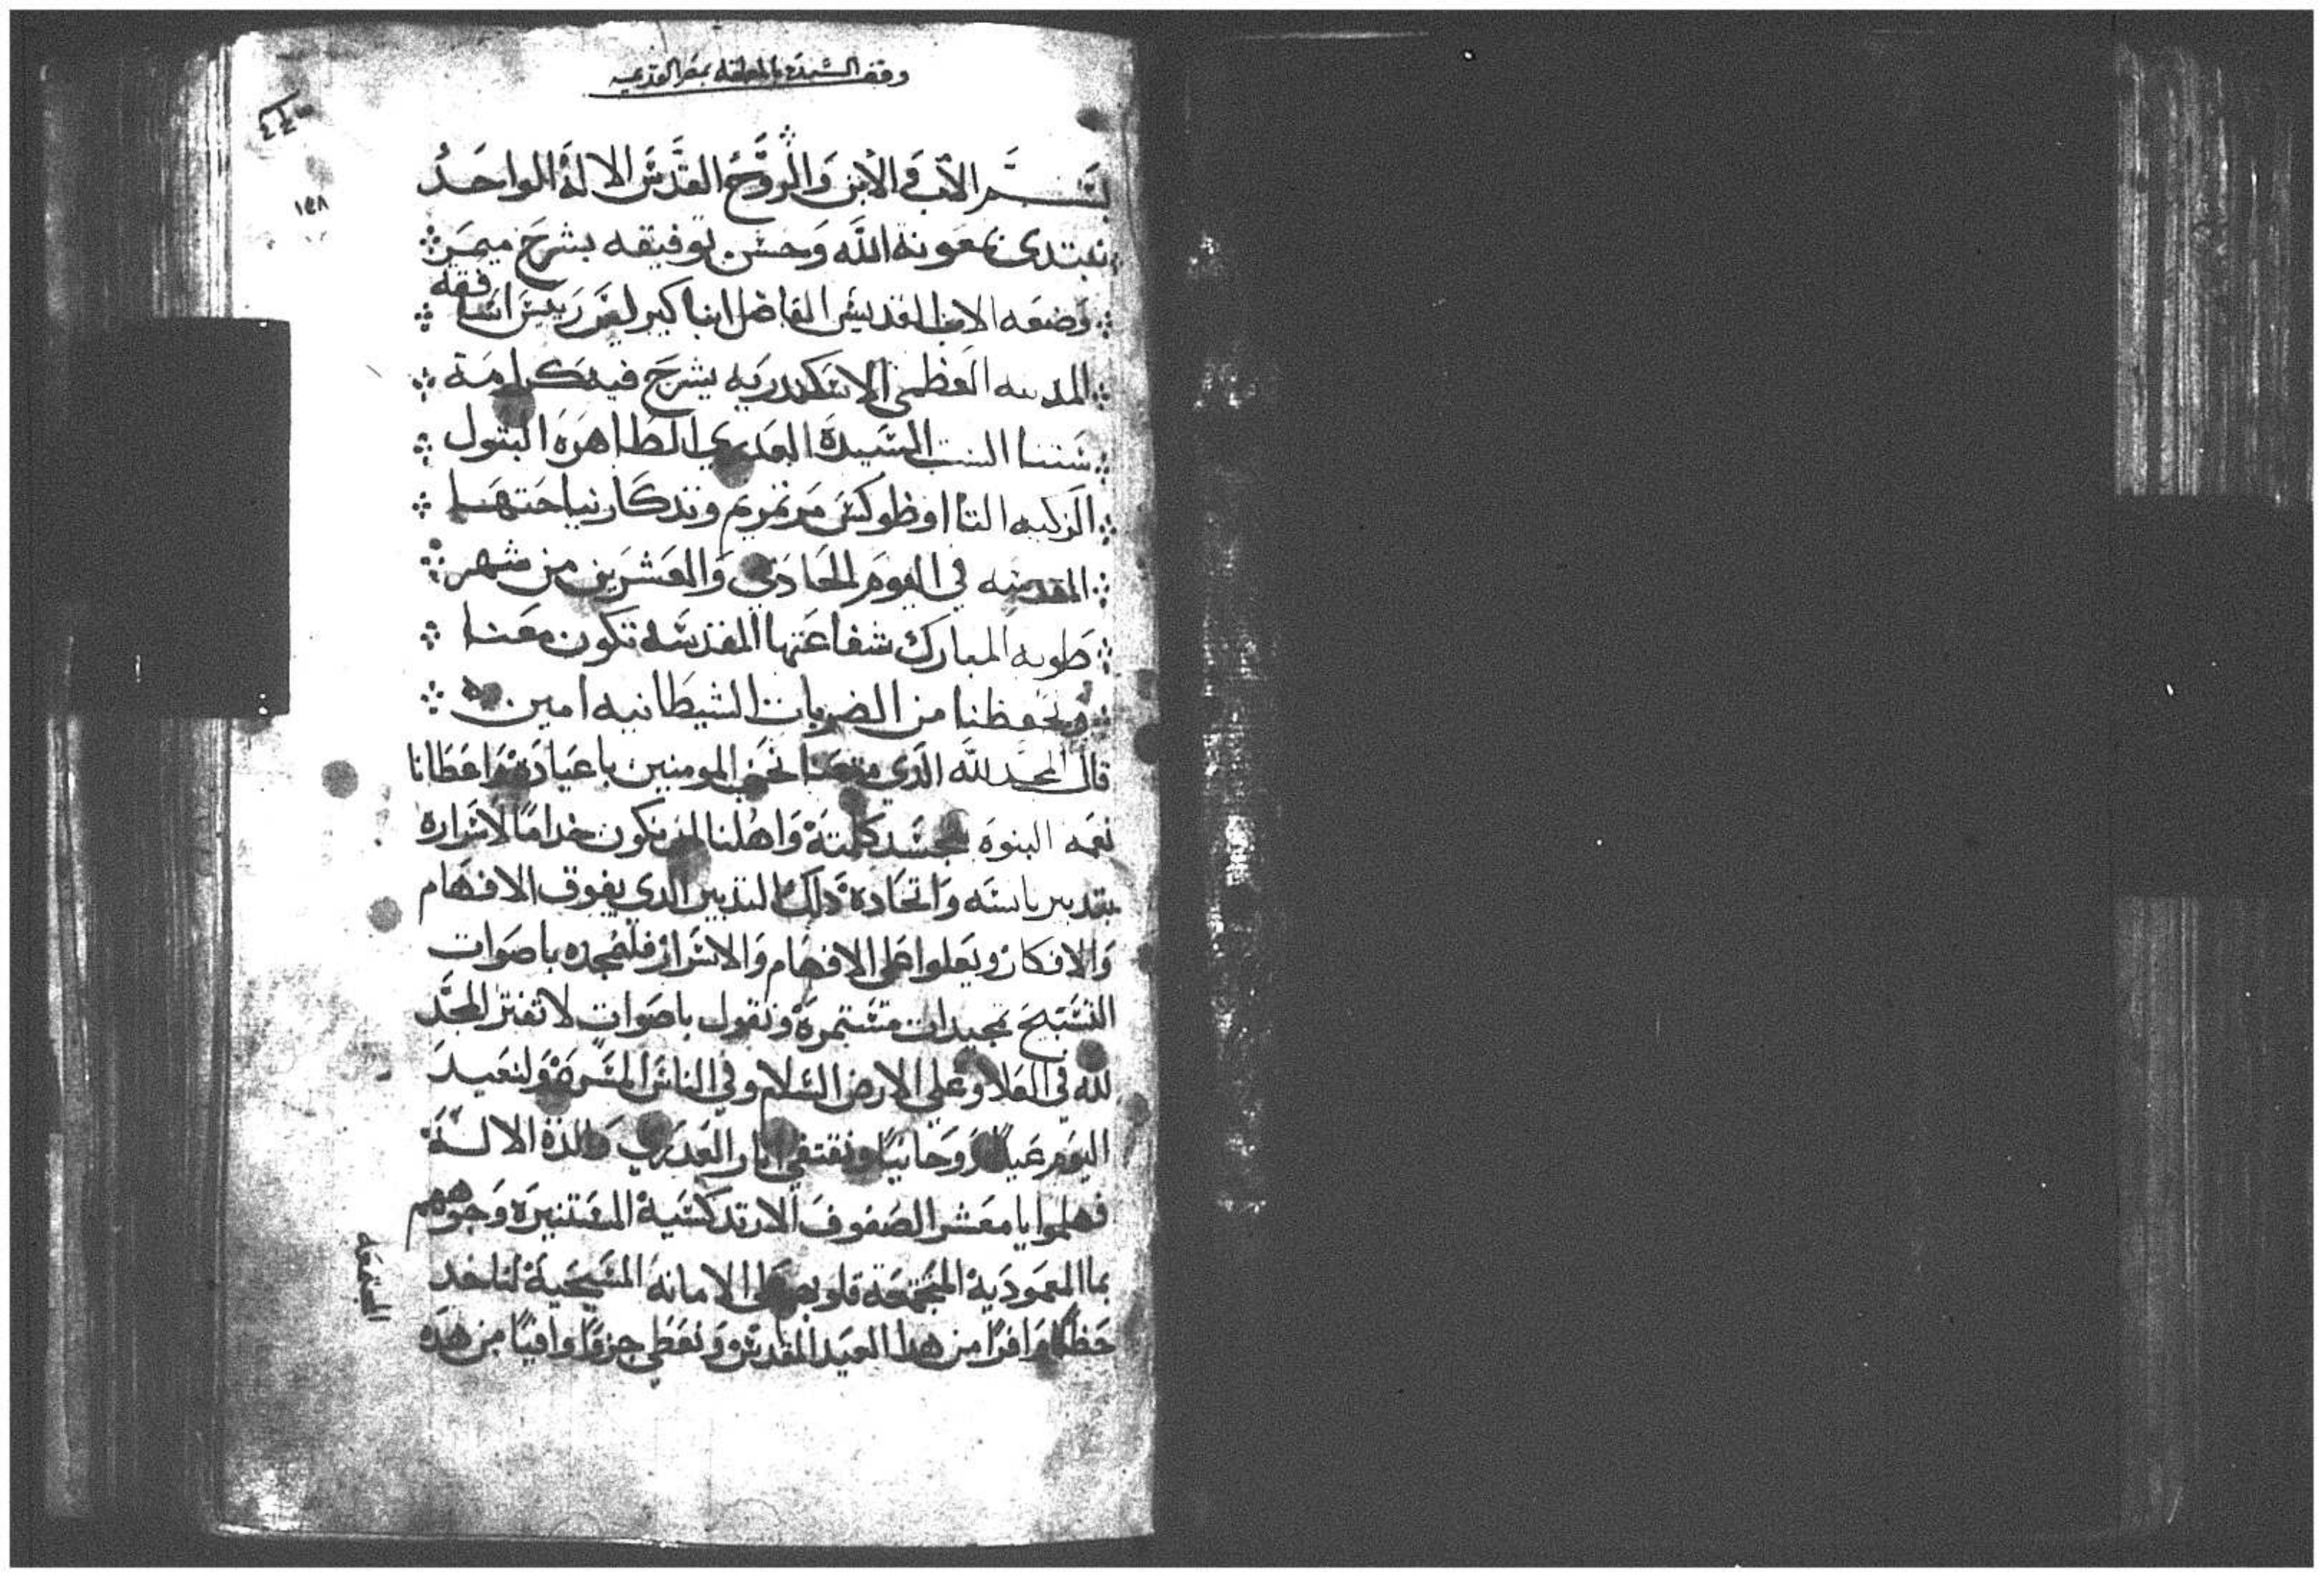 وقف السيدة بالمعلقه بمصر القديمه
١٥٨
بسم الاب والابن والروح القدس الاله الواحد
نبتدى بمعونة الله وحسن توفيقه بشرح ميمر
وضعه الاب القديس الفاضل انبا كيرلص رييس اساقفه
المدينه العظمى الاسكندريه يشرح فيه كرامة
ستنا الست السيدة العدرى الطاهره البتول
الزكيه التااوظوكس مرتمريم وتدكار نياحتها
المقدسه في اليوم الحادي والعشرين من شهر
طوبه المبارك شفاعتها المقدسه تكون معنا
وتحفظنا من الضربات الشيطانيه امين
قال المجد لله الذي متعنا نحن المومنين باعياده واعطانا
نعمه البنوه بتجسد كلمته واهلنا لان نكون خداما لاسراره
بتدبير ناسته واتحاده دلك التدبير الدي يفوق الافهام
والافكار ويعلوا على الافهام والاسرار فلنمجده باصوات
التسبيح تمجيدات مستمرة ونقول باصوات لا تفتر المجد
لله في العلا وعلى الارض السلام وفي الناس المسرة ولنعيد
اليوم عيدا روحانيا ونقتفي اثار العدري والدة الاله
فهلموا يا معشر الصفوف الارتدكسية المستنيرة وجوههم
بما المعمودية المجتمعة قلوبهم على الامانة المسيحية لناخد
حظا وافرا من هدا العيد المقدس ونعطي جزوا وافيا من هده